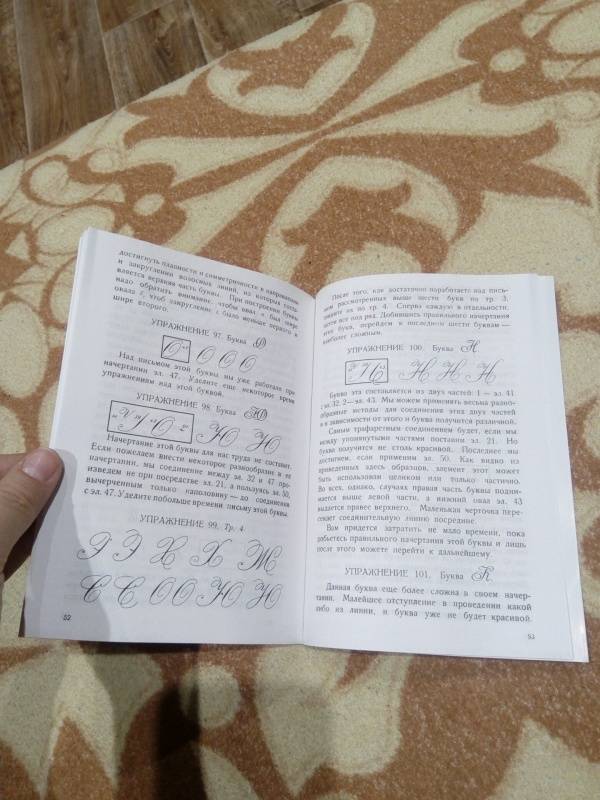 достигнуть плавности и симметричности в направлении
и закруглении волосных линий, из которых состав-
вляется верхняя часть буквы. При построении буквы
надо обратить внимание, чтобы овал
овала с, чтоб закругление было меньше первого и
шире второго.
УПРАЖНЕНИЕ 97. Буква О
О О О О
Над письмом этой буквы мы уже работали при
начертании эл. 47. Уделите еще некоторое время
упражнениям над этой буквой.
УПРАЖНЕНИЕ 98. Буква Ю
Ю Ю
Начертание этой буквы для нас труда не составит.
Если пожелаем внести некоторое разнообразие в ее
начертании, мы соединение между эл. 32 и 47 про-
изведем не при посредстве эл. 21, а пользуясь эл. 50,
вычерченным только наполовину — до соединения
с эл. 47. Уделите побольше времени письму этой буквы.
УПРАЖНЕНИЕ 99. Тр. 4
Э Э Х Х Ж
С С О О Ю Ю
52
После того, как достаточно поработаете над пись-
мом рассмотренных выше шести букв по тр. 3,
пишите их по тр. 4. Сперва каждую в отдельности,
затем все под ряд. Добившись правильного начертания
этих букв, перейдем к последним шести буквам —
наиболее сложным.
УПРАЖНЕНИЕ 100. Буква Н
Н Н Н
Буква эта составляется из двух частей: 1 — эл. 41
с эл. 32, 2 — эл. 43. Мы можем применять весьма разно-
образные методы для соединения этих двух частей
и в зависимости от этого и буква получится различной.
Самым трафаретным соединением будет, если мы
между упомянутыми частями поставим эл. 21. Но
буква получится не столь красивой. Последнее мы
достигнем, если применим эл. 50. Как видно из
приведенных здесь образцов, элемент этот может
быть использован целиком или только частично.
Во всех, однако, случаях правая часть буквы подни-
мается выше левой части, а нижний овал эл. 43
выдается правее верхнего. Маленькая черточка пере-
секает соединительную линию посредине.
Вам придется затратить не мало времени, пока
добьетесь правильного начертания этой буквы и лишь
после этого можете перейти к дальнейшему.
УПРАЖНЕНИЕ 101. Буква К
Данная буква еще более сложна в своем начер-
тании. Малейшее отступление в проведении какой
либо из линии, и буква уже не будет красивой.
53